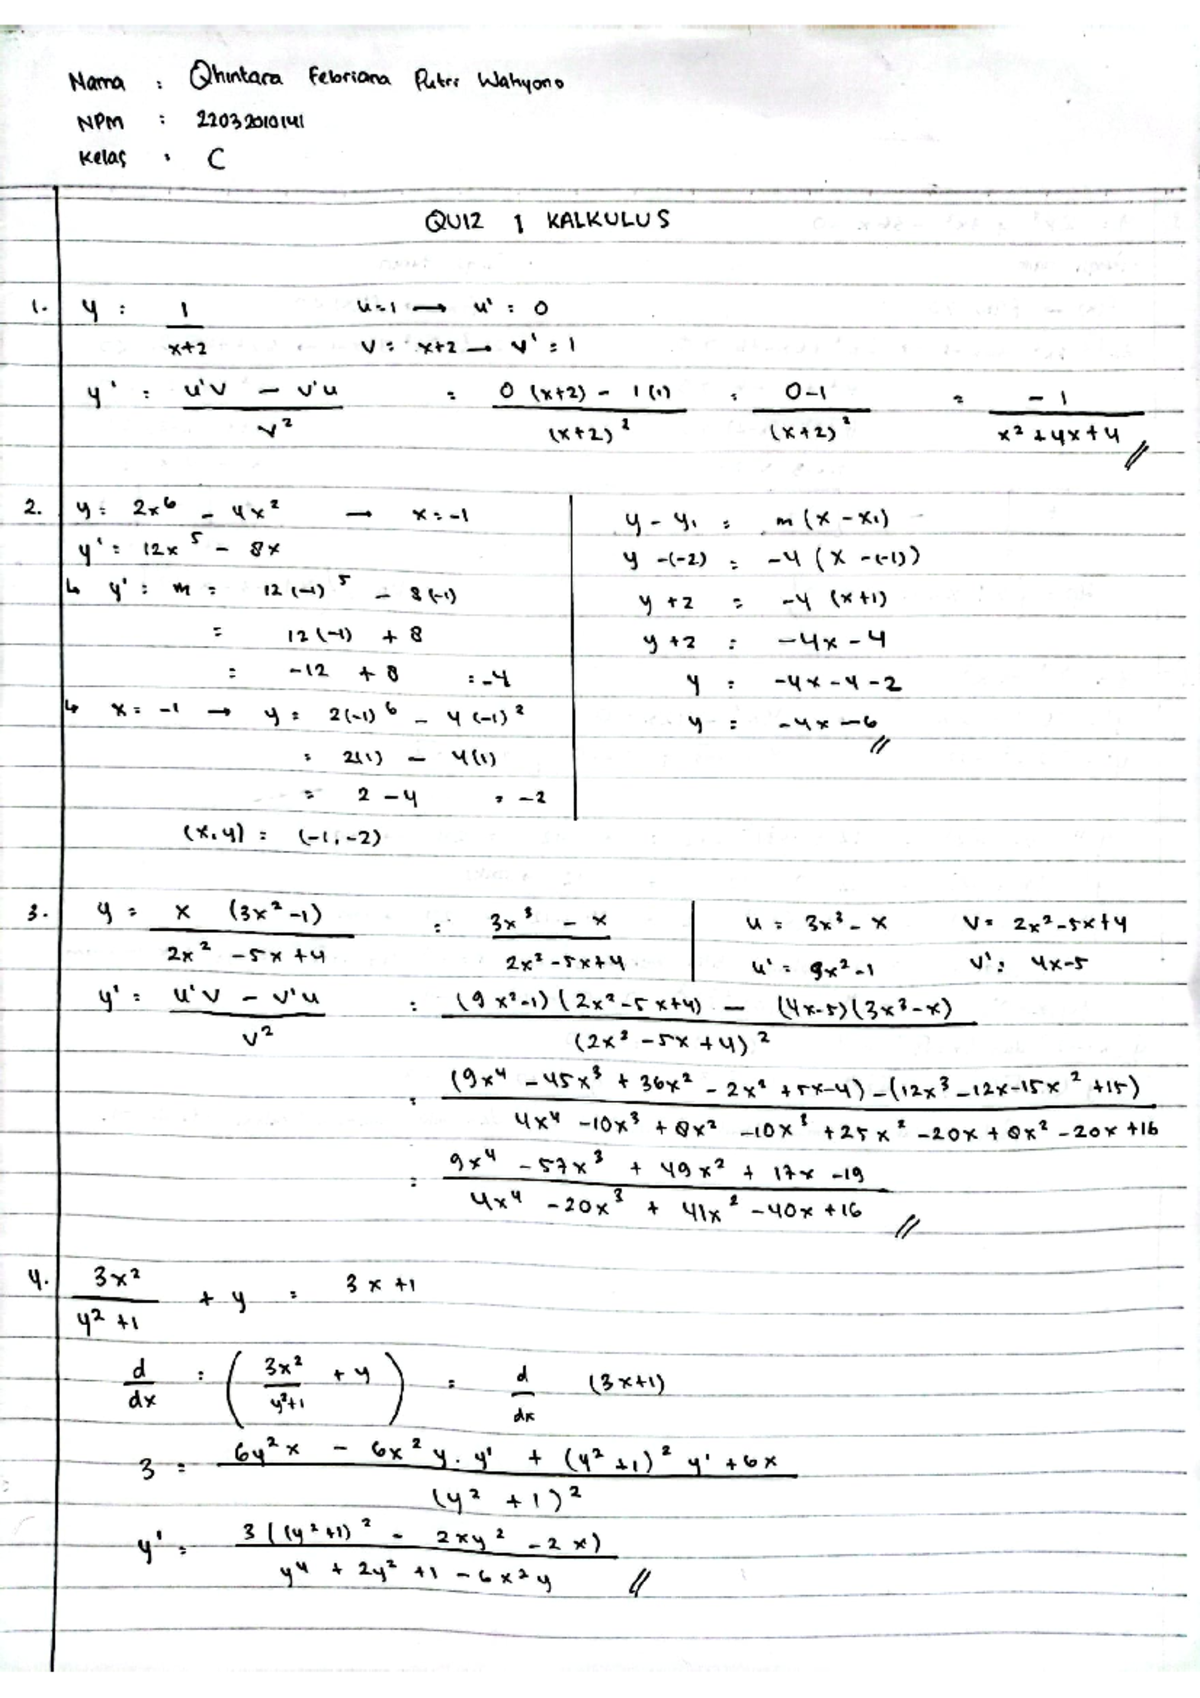 Nama : Qhintara Febriana Putri Wahyono
NPM : 22032010141
Kelas : C
QUIZ 1 KALKULUS
1. y = 1/(x+2) u=1 → u' = 0
v = x+2 → v' = 1
y' = (u'v - v'u)/v² = (0(x+2) - 1(1))/(x+2)² = (0-1)/(x+2)² = -1/(x²+4x+4) //
2. y = 2x⁶ - 4x² → x=-1
y' = 12x⁵ - 8x
↳ y' = m = 12(-1)⁵ - 8(-1)
= 12(-1) + 8
= -12 + 8 = -4
↳ x = -1 → y = 2(-1)⁶ - 4(-1)²
= 2(1) - 4(1)
= 2 - 4 = -2
(x,y) = (-1,-2)
y - y₁ = m(x - x₁)
y -(-2) = -4(x -(-1))
y + 2 = -4(x+1)
y + 2 = -4x - 4
y = -4x - 4 - 2
y = -4x - 6 //
3. y = x(3x²-1)/(2x² - 5x + 4) = (3x³ - x)/(2x² - 5x + 4) u = 3x³ - x v = 2x² - 5x + 4
u' = 9x² - 1 v' = 4x-5
y' = (u'v - v'u)/v² = ((9x²-1)(2x²-5x+4) - (4x-5)(3x³-x))/(2x² - 5x + 4)²
= ((9x⁴ - 45x³ + 36x² - 2x² + 5x - 4) - (12x³ - 12x - 15x² + 15))/(4x⁴ - 10x³ + 8x² - 10x³ + 25x² - 20x + 8x² - 20x + 16)
= (9x⁴ - 57x³ + 49x² + 17x - 19)/(4x⁴ - 20x³ + 41x² - 40x + 16) //
4. 3x²/(y²+1) + y = 3x + 1
d/dx = (3x²/(y²+1) + y) = d/dx (3x+1)
3 = (6y²x - 6x²y.y' + (y²+1)² y' + 6x)/(y²+1)²
y' = 3((y²+1)² - 2xy² - 2x)/(y⁴ + 2y² + 1 - 6x²y) //